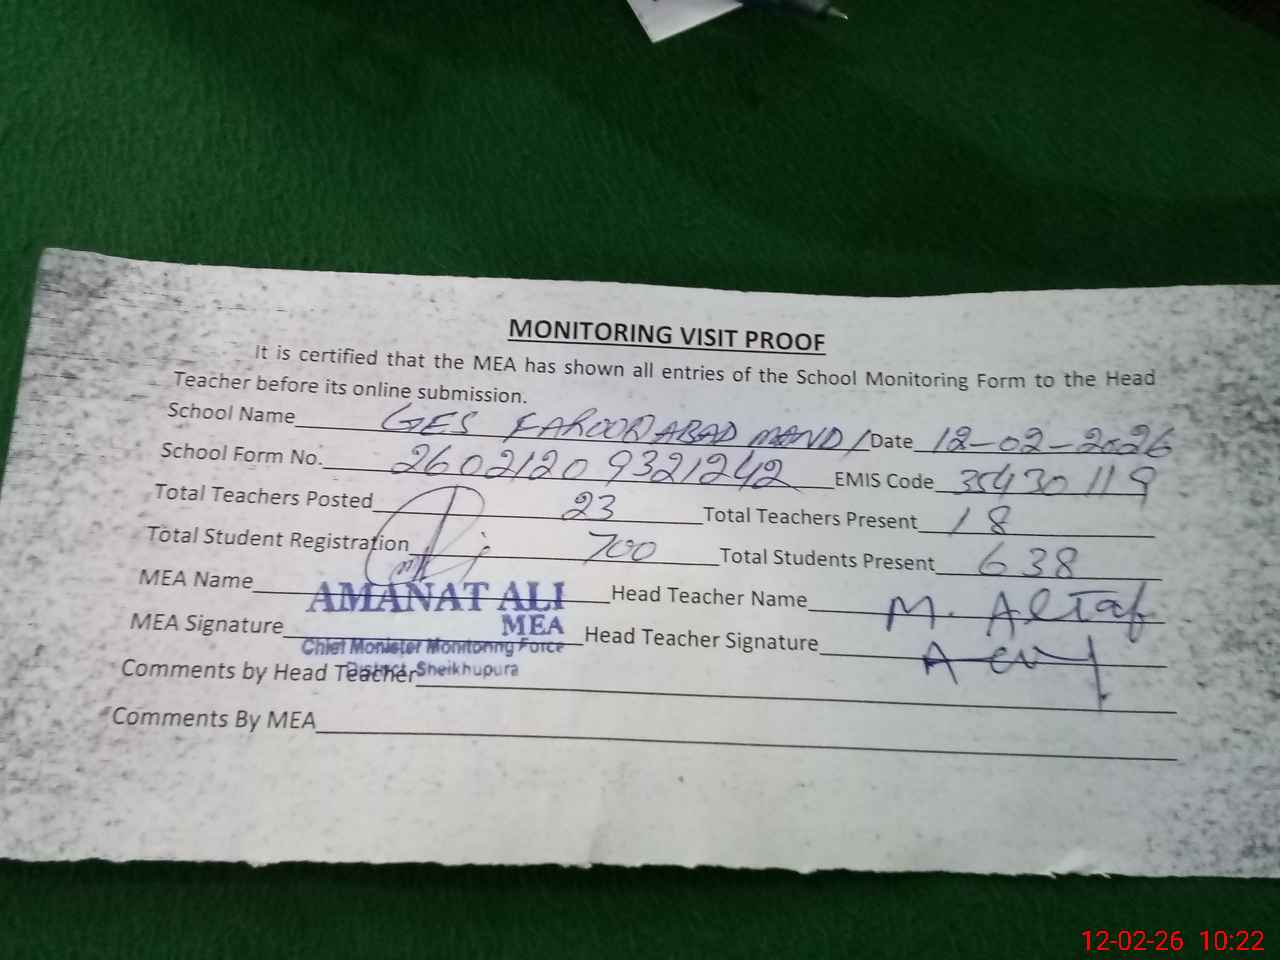 MONITORING VISIT PROOF
It is certified that the MEA has shown all entries of the School Monitoring Form to the Head
Teacher before its online submission.
School Name GES FAROOQABAD MANDI Date 12-02-2026
School Form No. 26021209321242 EMIS Code 35430119
Total Teachers Posted 23 Total Teachers Present 18
Total Student Registration 700 Total Students Present 638
MEA Name AMANAT ALI Head Teacher Name M. Altaf
MEA Signature MEA Head Teacher Signature
Chief Monister Monitoring Force
Comments by Head Teacher District Sheikhupura
Comments By MEA
12-02-26 10:22